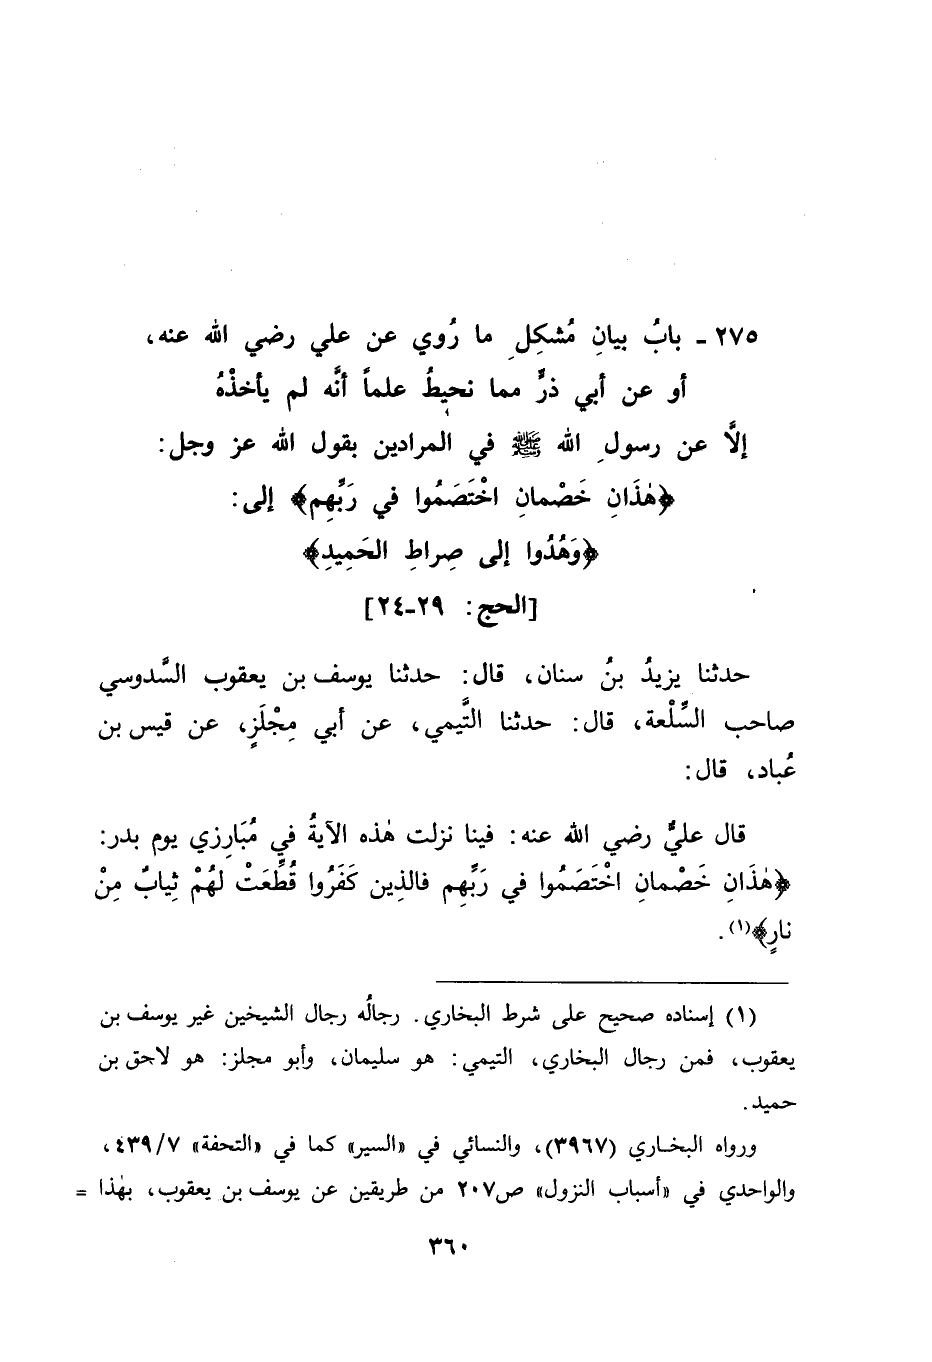 ٢٧٥ ـ بابُ بيانِ مُشكِلِ ما رُوي عن علي رضي الله عنه،
أو عن أبي ذرٍّ مما نحيطُ علماً أنَّه لم يأخذْهُ
إلَّا عن رسولِ الله ﷺ في المرادين بقول الله عز وجل:
﴿هٰذَانِ خَصْمانِ اخْتَصَمُوا في رَبِّهِم﴾ إلى:
﴿وَهُدُوا إلى صِراطِ الحَمِيدِ﴾
[الحج: ٢٩-٢٤]
حدثنا يزيدُ بنُ سنان، قال: حدثنا يوسف بن يعقوب السَّدوسي
صاحب السِّلْعة، قال: حدثنا التَّيمي، عن أبي مِجْلَزٍ، عن قيس بن
عُباد، قال:
قال عليٌّ رضي الله عنه: فينا نزلت هٰذه الآيةُ في مُبَارِزي يوم بدر:
﴿هٰذَانِ خَصْمانِ اخْتَصَمُوا في رَبِّهِم فالذِين كَفَرُوا قُطِّعَتْ لَهُمْ ثِيابٌ مِنْ
نارٍ﴾(١).
(١) إسناده صحيح على شرط البخاري. رجالُه رجال الشيخين غير يوسف بن
يعقوب، فمن رجال البخاري، التيمي: هو سليمان، وأبو مجلز: هو لاحق بن
حميد.
ورواه البخاري (٣٩٦٧)، والنسائي في «السير» كما في «التحفة» ٤٣٩/٧،
والواحدي في «أسباب النزول» ص٢٠٧ من طريقين عن يوسف بن يعقوب، بهٰذا =
٣٦٠